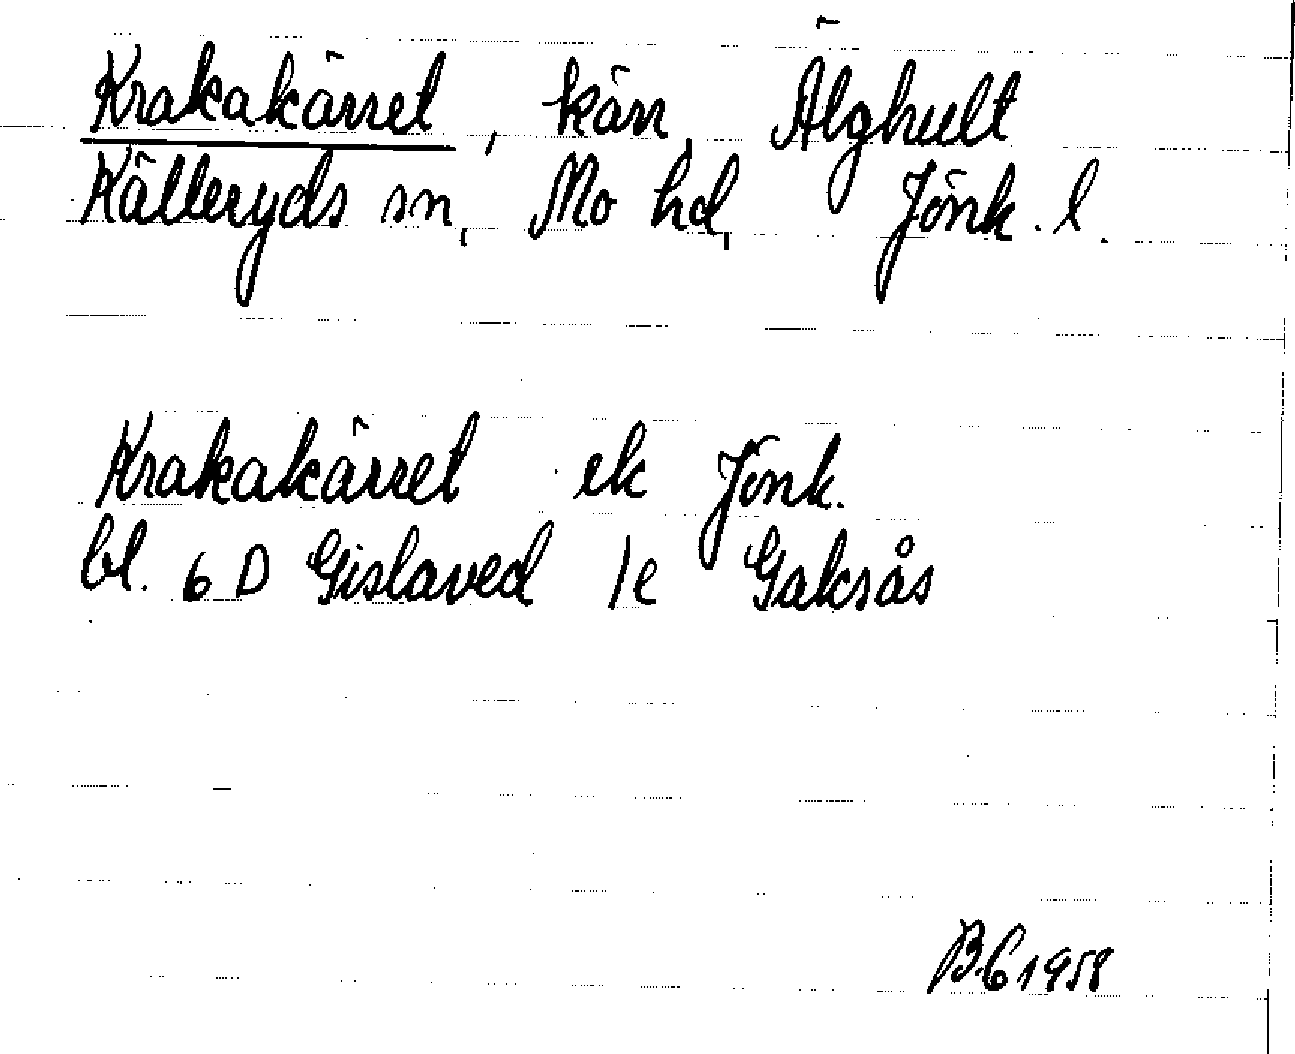 Krakakärret, kärr, Älghult
Källeryds sn, Mo hd, Jönk. l.
Krakakärret ek Jönk.
bl. 6 D Gislaved 1e Gaksås
1958